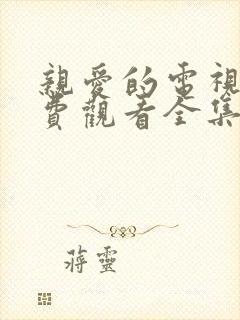 親愛的電視
費觀看全集
蔣靈